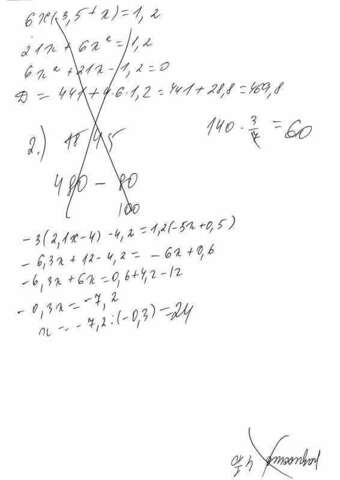 6x(3,5+x)=1,2
21x+6x²=1,2
6x²+21x-1,2=0
D=441+4·6·1,2=441+28,8=469,8
140·3/7=60
2.) 18 45
480-80
100
-3(2,1x-4)-4,2=1,2(-5x+0,5)
-6,3x+12-4,2=-6x+0,6
-6,3x+6x=0,6+4,2-12
-0,3x=-7,2
x=-7,2:(-0,3)=24